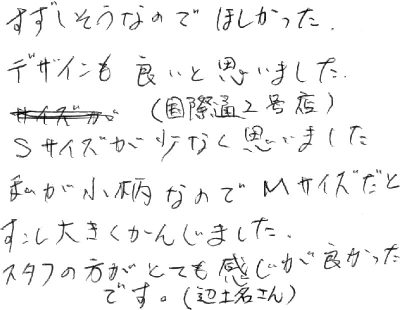 すずしそうなので ほしかった.
デザインも 良いと思いました.
サイズが (国際通2号店)
Sサイズが少なく思いました
私が小柄なのでMサイズだと
すこし大きくかんじました.
スタフの方がとても感じが良かった
です。(辺土名さん)